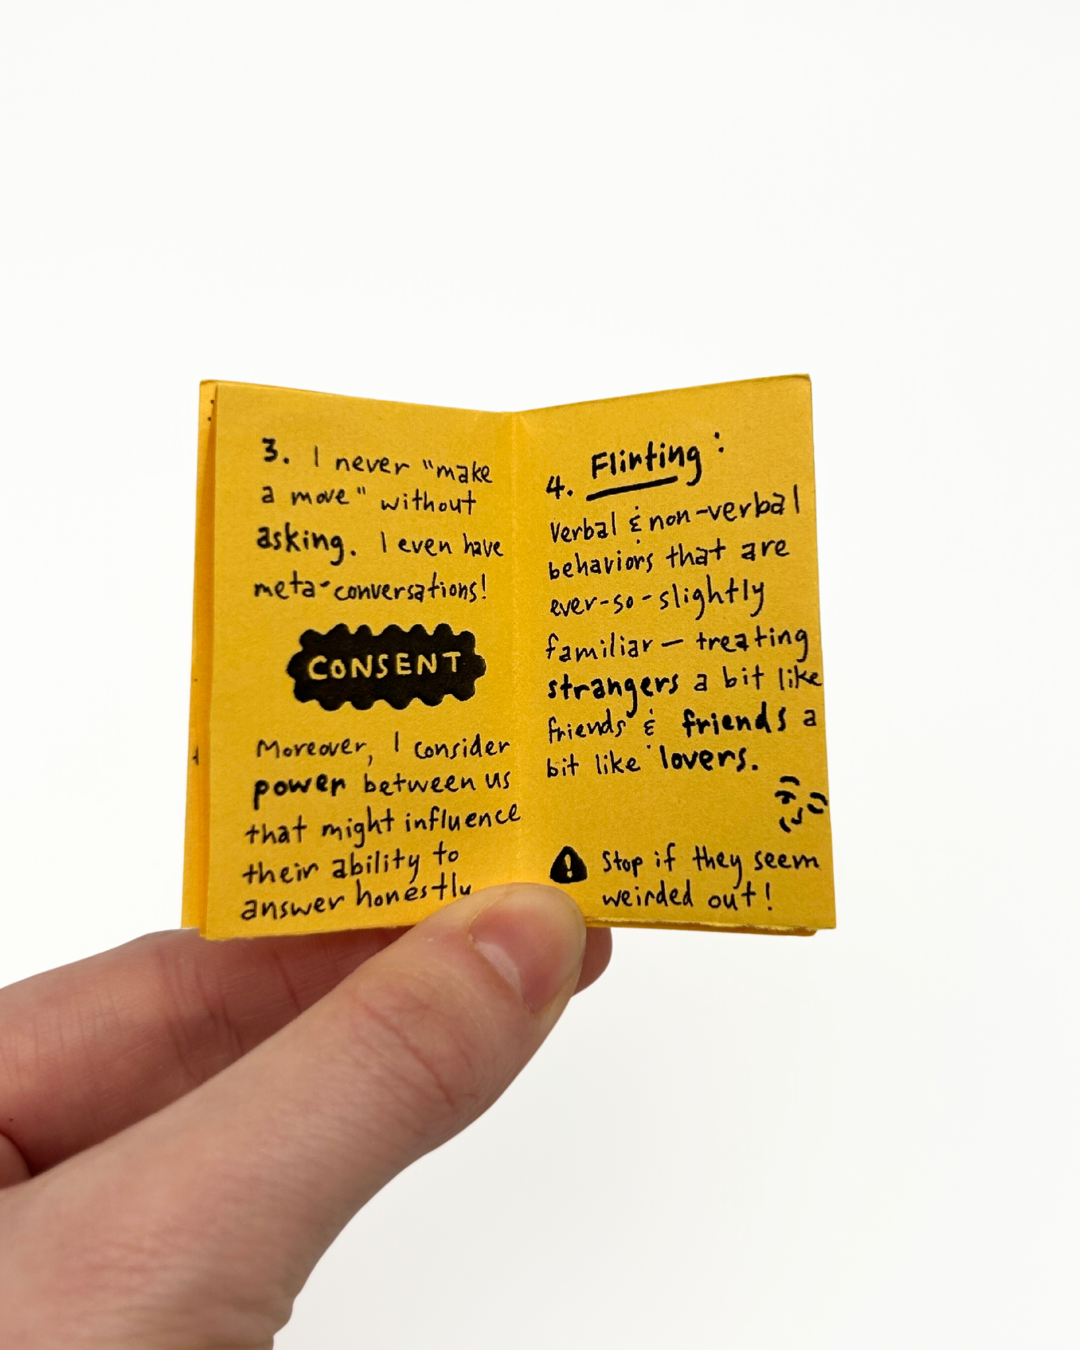 3. I never "make
a move" without
asking. I even have
meta-conversations!
CONSENT
Moreover, I consider
power between us
that might influence
their ability to
answer honestly
4. Flirting:
Verbal & non-verbal
behaviors that are
ever-so-slightly
familiar — treating
strangers a bit like
friends & friends a
bit like lovers.
! Stop if they seem
weirded out!